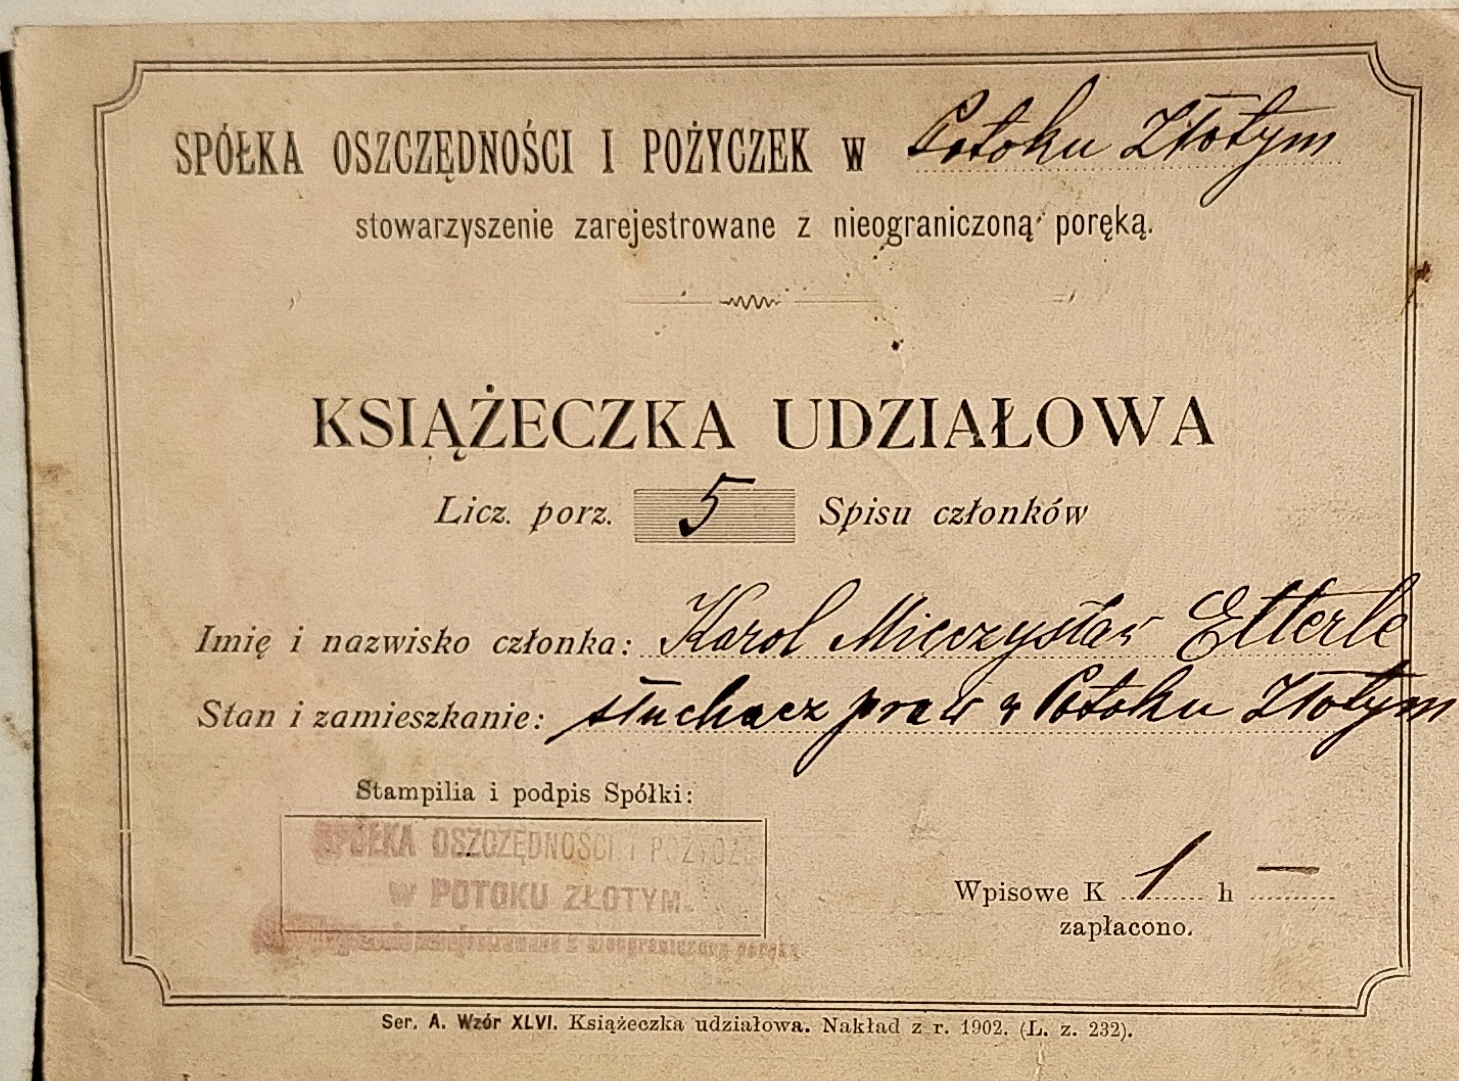 SPÓŁKA OSZCZĘDNOŚCI I POŻYCZEK w Potoku Złotym
stowarzyszenie zarejestrowane z nieograniczoną poręką.
KSIĄŻECZKA UDZIAŁOWA
Licz. porz. 5 Spisu członków
Imię i nazwisko członka: Karol Mieczysław Etterle
Stan i zamieszkanie: słuchacz praw w Potoku Złotym
Stampilia i podpis Spółki:
SPÓŁKA OSZCZĘDNOŚCI i POŻYCZ
w POTOKU ZŁOTYM.
z nieograniczoną poręką
Wpisowe K 1 h —
zapłacono.
Ser. A. Wzór XLVI. Książeczka udziałowa. Nakład z r. 1902. (L. z. 232).